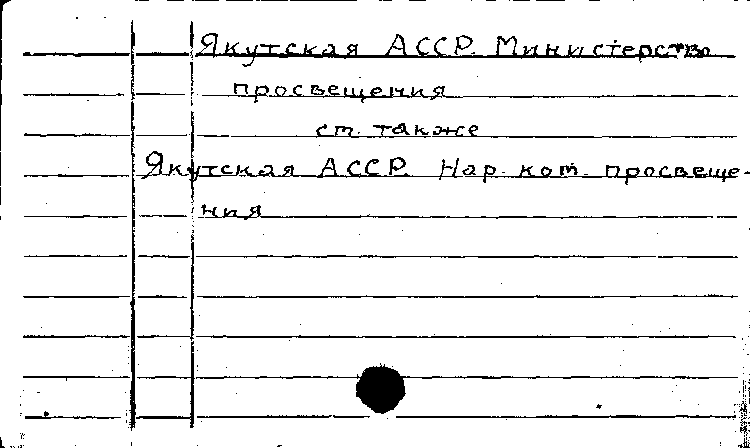 Якутская АССР. Министерство
просвещения
см. также
Якутская АССР. Нар. ком. просвеще-
ния